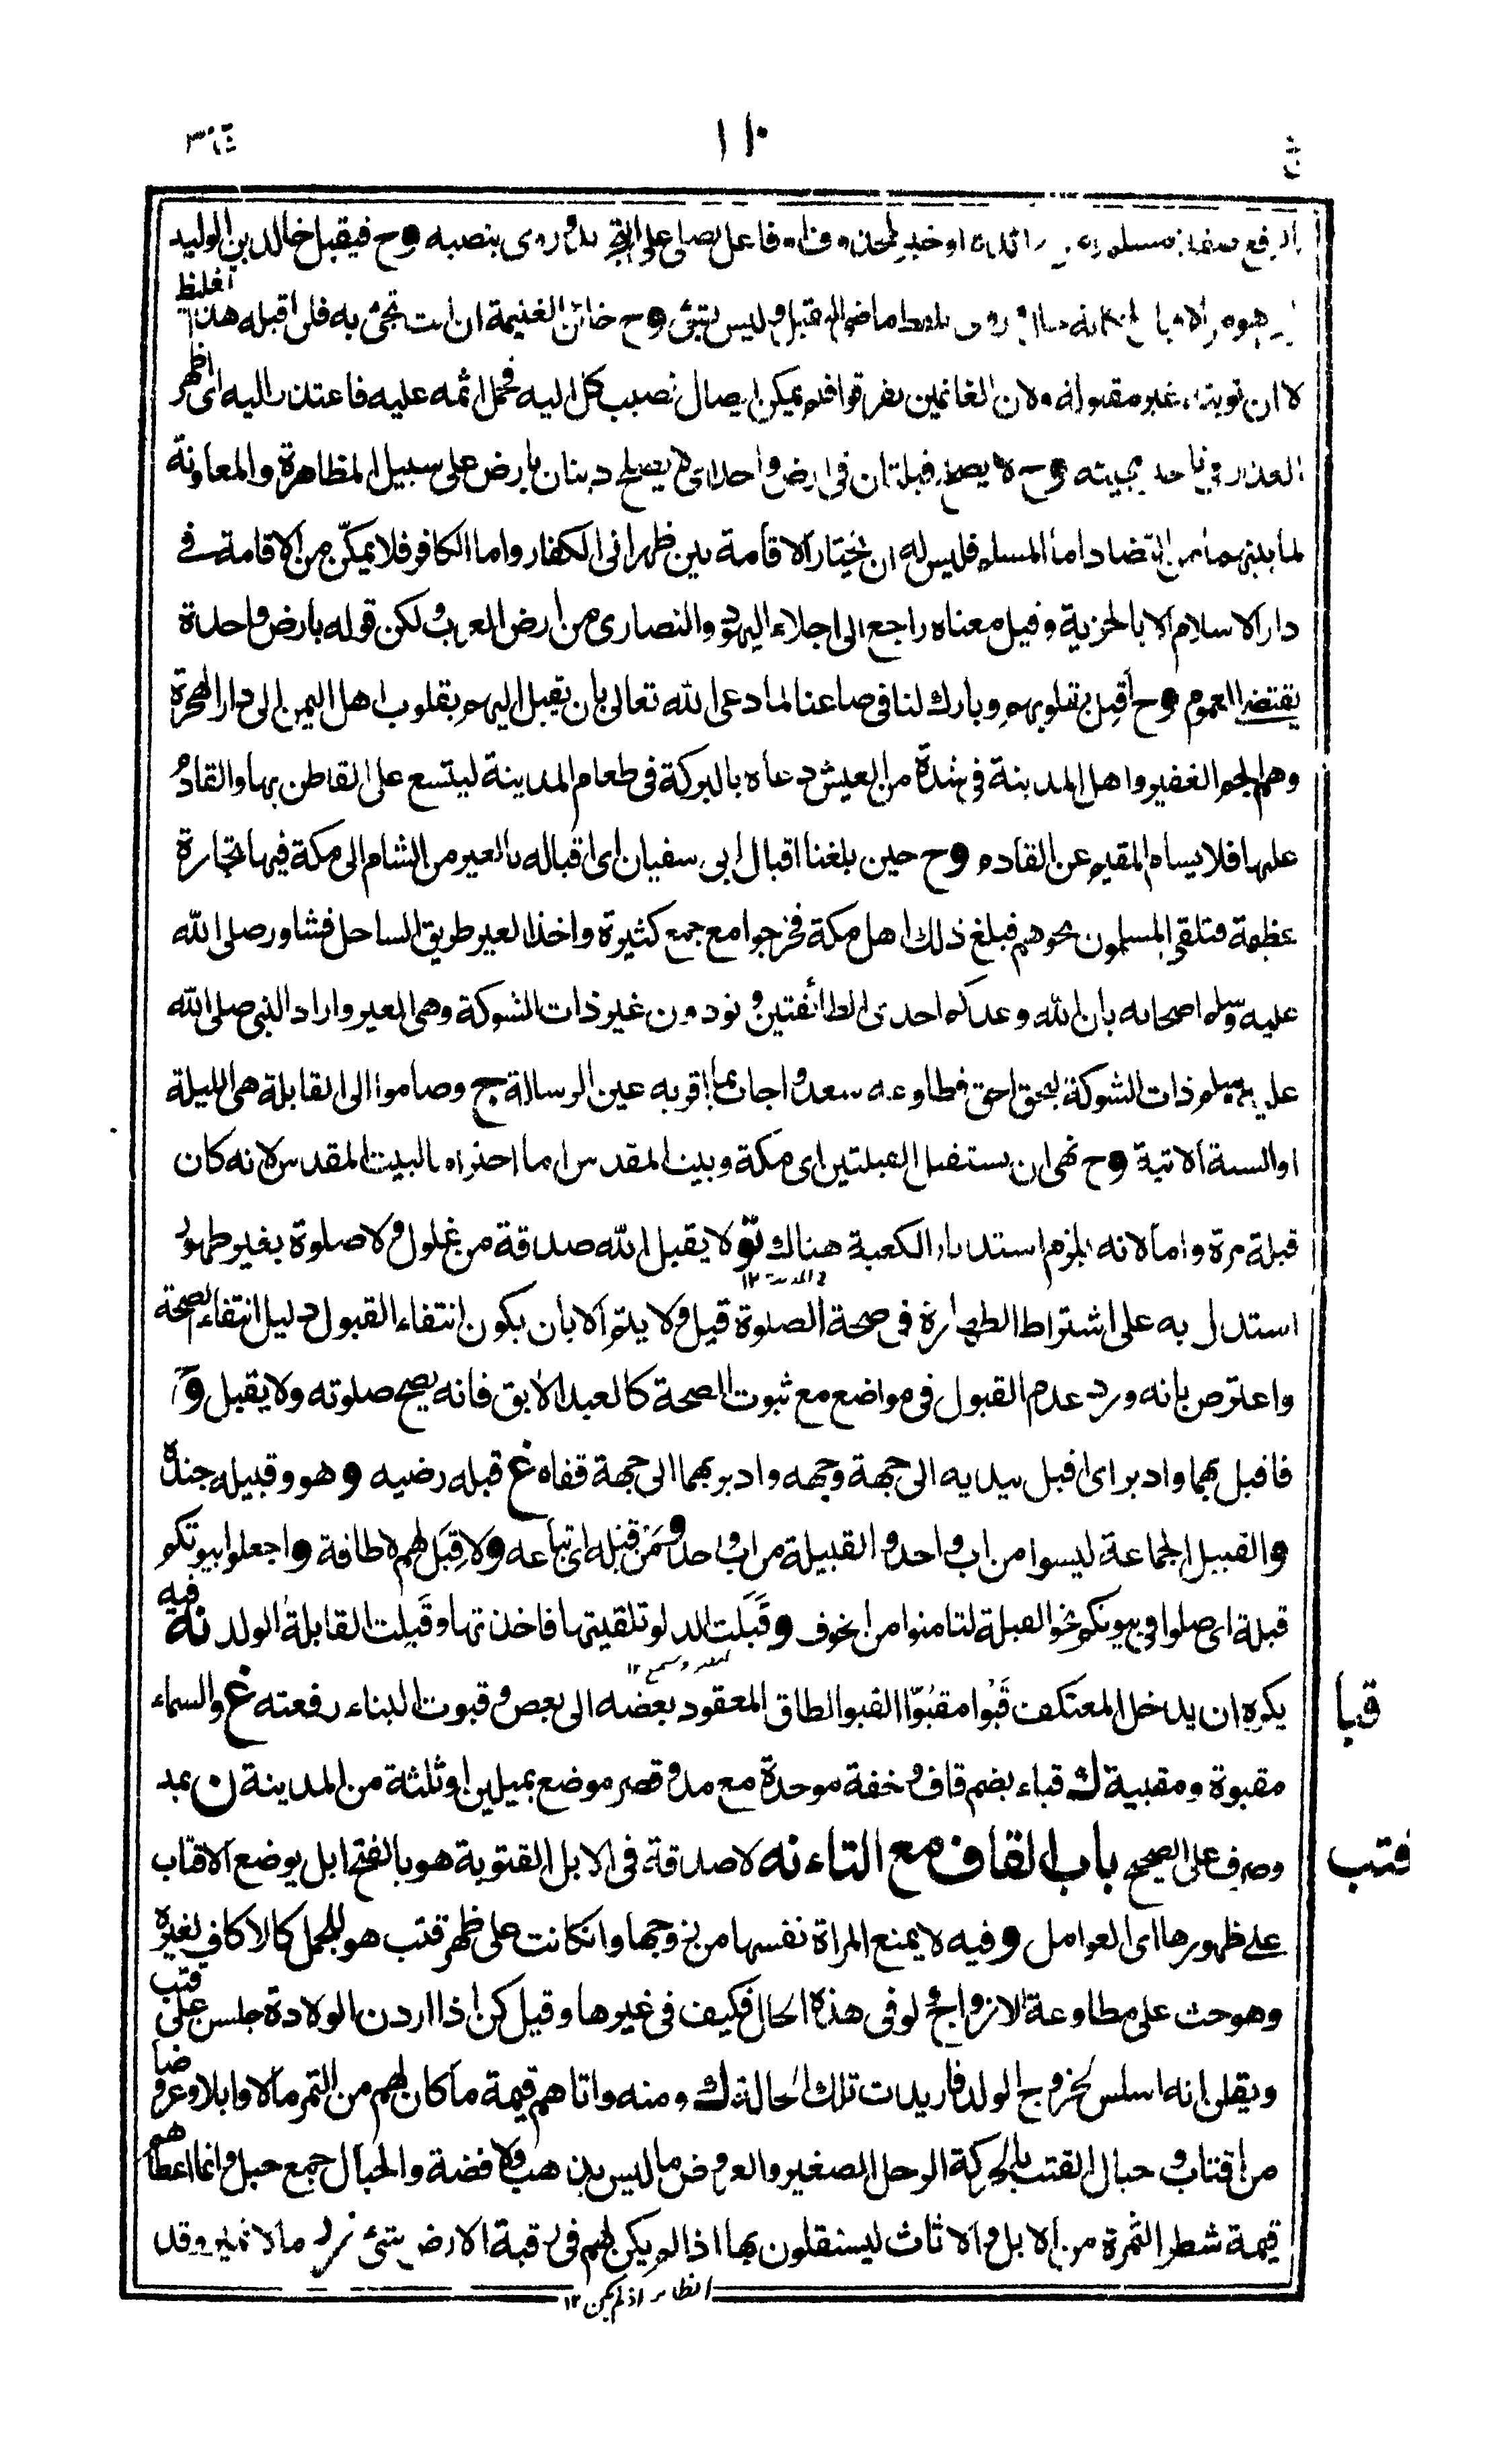 ١١٠
بالرفع صفة مسلم او خبر محذوف فاعل يصلى على النبى وروى بنصبه وح فيقبل خالد بن الوليد
وروى بلفظ ماضى القبل وليس بشئ وح خائن الغنيمة ان انت تجئ به فلن اقبله هذا تغليظ
لا ان توبته غير مقبولة ولان الغانمين تفرقوا فلم يمكن ايصال نصيب كل اليه فحمل اثمه عليه فاعتذر اليه اى اظهر
العذر فى تاخر مجيئه وح لا يصلح قبلتان فى ارض واحد اى لا يصلح دينان بارض على سبيل المظاهرة والمعاونة
لما بينهما من التضاد اما المسلم فليس له ان يختار الاقامة بين ظهرانى الكفار واما الكافر فلا يمكّن من الاقامة فى
دار الاسلام الا بالجزية وقيل معناه راجع الى اجلاء اليهود والنصارى من ارض العرب ولكن قوله بارض واحدة
يقتضى العموم وح أقبِل بقلوبهم وبارك لنا فى صاعنا لما دعى الله تعالى بان يقبل اليهم بقلوب اهل اليمن الى دار الهجرة
وهم الجم الغفير واهل المدينة فى شدة من العيش دعاه بالبركة فى طعام المدينة ليتسع على القاطن بها والقادم
عليها فلا يسام المقيم عن القادم وح حين بلغنا اقبال ابى سفيان اى اقباله بالعير من الشام الى مكة فيها تجارة
عظيمة فتلقى المسلمون نحوهم فبلغ ذلك اهل مكة فخرجوا مع جمع كثيرة واخذ العير طريق الساحل فشاور صلى الله
عليه وسلم اصحابه بان الله وعدكم احدى الطائفتين وتودون غير ذات الشوكة وهى العير واراد النبى صلى الله
عليه وسلم ذات الشوكة ليحق الحق فطاوعه سعد واجاب بما اقر به عين الرسالة ج وصاموا الى القابلة هى الليلة
او السنة الاتية وح نهى ان يستقبل القبلتين اى مكة وبيت المقدس اما احترام البيت المقدس لانه كان
قبلة مرة واما لانه يلزم استدبار الكعبة هناك تو لا يقبل الله صدقة من غلول ولا صلوة بغير طهور
فى المدينة ١٢
استدل به على اشتراط الطهارة فى صحة الصلوة قيل ولا يتم الا بان يكون انتفاء القبول دليل انتفاء الصحة
واعترض بانه ورد عدم القبول فى مواضع مع ثبوت الصحة كالعبد الابق فانه يصح صلوته ولا يقبل وح
فاقبل بهما وادبر اى اقبل بيديه الى جهة وجهه وادبر بهما الى جهة قفاه غ قبله رضيه وهو وقبيله جنده
والقبيل الجماعة ليسوا من اب واحد والقبيلة من اب واحد ومَنْ قِبَله اى تباعه ولا قِبَل لهم لا طاقة واجعلوا بيوتكم
قبلة اى صلوا فى بيوتكم نحو القبلة لتامنوا من الخوف وقَبَلت الدلو تلقيتها فاخذتها وقَبِلت القابلةُ الولد نه فيه
يكره ان يدخل المعتكف قَبْوا مقبُوّا القبو الطاق المعقود بعضه الى بعض وقبوت البناء رفعته غ والسماء
قبا
مقبوة ومقبية ك قباء بضم قاف وخفة موحدة مع مد وقصر موضع بميلين او ثلثة من المدينة ن بمد
وصرف على الصحيح باب القاف مع التاء نه لا صدقة فى الابل القتوبة هو بالفتح ابل يوضع الاقتاب
قتب
على ظهورها اى العوامل وفيه لا يمنع المراة نفسها من زوجها وانكانت على ظهر قتب هو للجمل كالاكاف لغيره
وهو حث على مطاوعة الازواج ولو فى هذه الحال فكيف فى غيرها وقيل كن اذا اردن الولادة جلسن على قتب
ويقلن انه اسلس لخروج الولد فاريدت تلك الحالة ك ومنه واتاهم قيمة ما كان لهم من الثمر مالا وابلا وعروضا
من اقتاب وحبال القتب بالحركة الرحل الصغير والعروض ما ليس بذهب ولا فضة والحبال جمع حبل وانما اعطاهم
قيمة شطر الثمرة من الابل والاثاث ليستقلون بها اذا لم يكن لهم فى رقبة الارض شئ مالا تمييز وقد
الظاهر اذ لم يكن ١٢